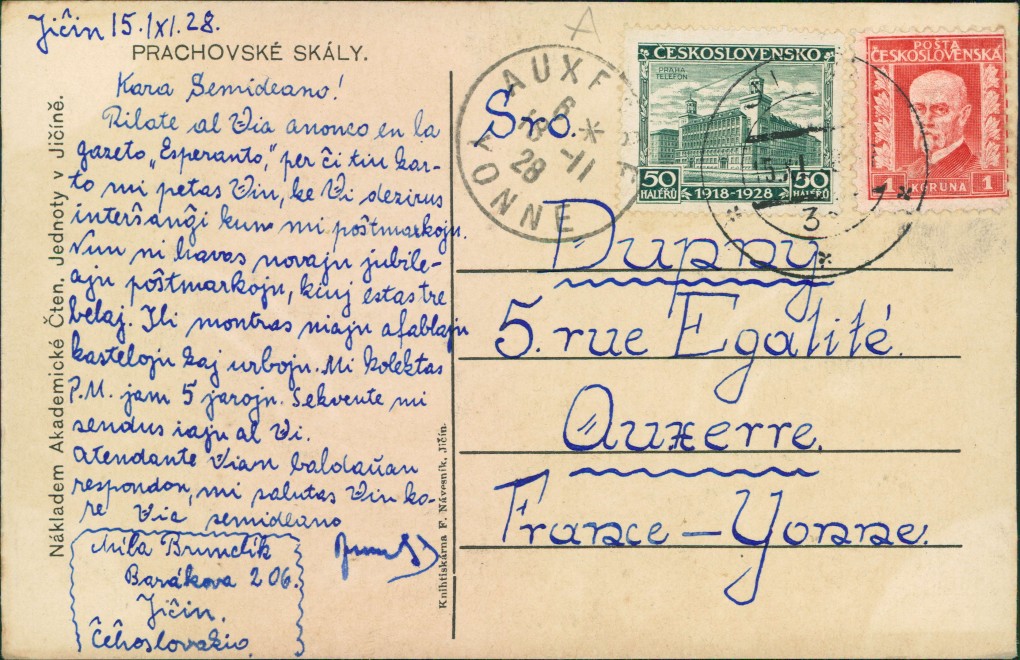 Jičín 15./XI. 28.
PRACHOVSKÉ SKÁLY.
Kara Semideano!
Rilate al Via anonco en la
gazeto „Esperanto," per ĉi tiu kar-
to mi petas Vin, ke Vi dezirus
interŝanĝi kun mi poŝtmarkojn.
Nun ni havas novajn jubile-
ajn poŝtmarkojn, kiuj estas tre
belaj. Ili montras niajn afablajn
kastelojn kaj urbojn. Mi kolektas
P.M. jam 5 jarojn. Sekvente mi
sendus iajn al Vi.
Atendante Vian baldaŭan
respondon, mi salutas Vin ko-
re Via semideano
Míla Brunclík
Barákova 206.
Jičín.
Ĉeĥoslovakio
Nákladem Akademické Čten. Jednoty v Jičíně.
Knihtiskárna F. Návesník, Jičín.
AUXE
YONNE
6
28 -11
ČESKOSLOVENSKO
PRAHA
TELEFON
50 50
HALÉŘŮ 1918-1928 HALÉŘŮ
POŠTA
ČESKOSLOVENSKÁ
1 KORUNA 1
3
Sro.
Duppy
5. rue Egalité.
Auxerre.
France – Yonne.